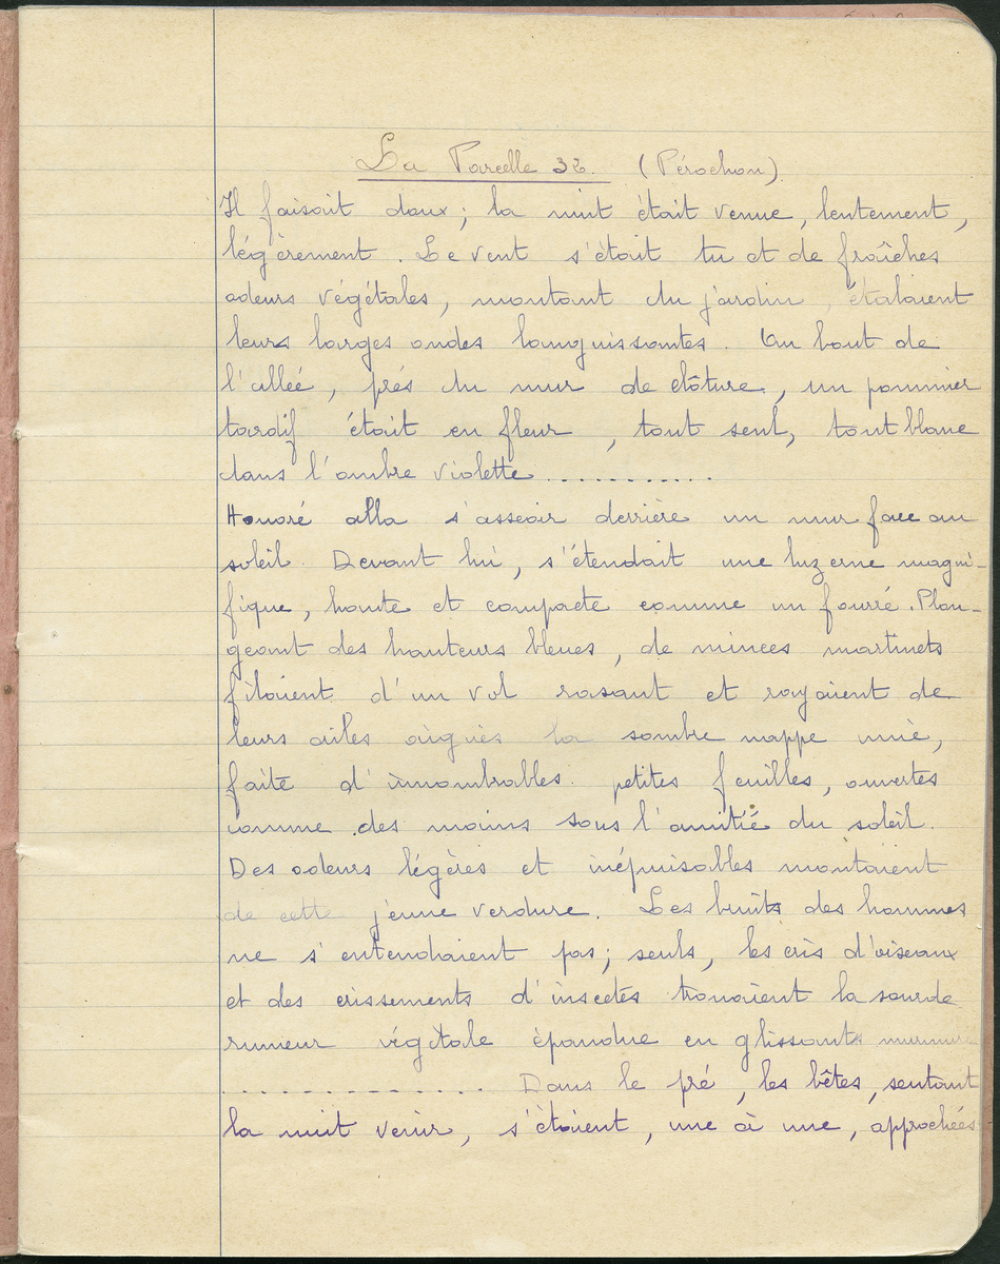 La Parcelle 32. (Pérochon).
Il faisait doux ; la nuit était venue, lentement,
légèrement. Le vent s'était tu et de fraîches
odeurs végétales, montant du jardin, étalaient
leurs larges ondes languissantes. Au bout de
l'allée, près du mur de clôture, un pommier
tardif était en fleur, tout seul, tout blanc
dans l'ombre violette ...........
Honoré alla s'asseoir derrière un mur face au
soleil. Devant lui, s'étendait une luzerne magni-
fique, haute et compacte comme un fourré. Plon-
geant des hauteurs bleues, de minces martinets
filaient d'un vol rasant et rayaient de
leurs ailes aiguës la sombre nappe unie,
faite d'innombrables petites feuilles, ouvertes
comme des mains sous l'amitié du soleil.
Des odeurs légères et inépuisables montaient
de cette jeune verdure. Les bruits des hommes
ne s'entendraient pas ; seuls, les cris d'oiseaux
et des crissements d'insectes trouaient la sourde
rumeur végétale épandue en glissants murmure
.............. Dans le pré, les bêtes, sentant
la nuit venir, s'étaient, une à une, approchées